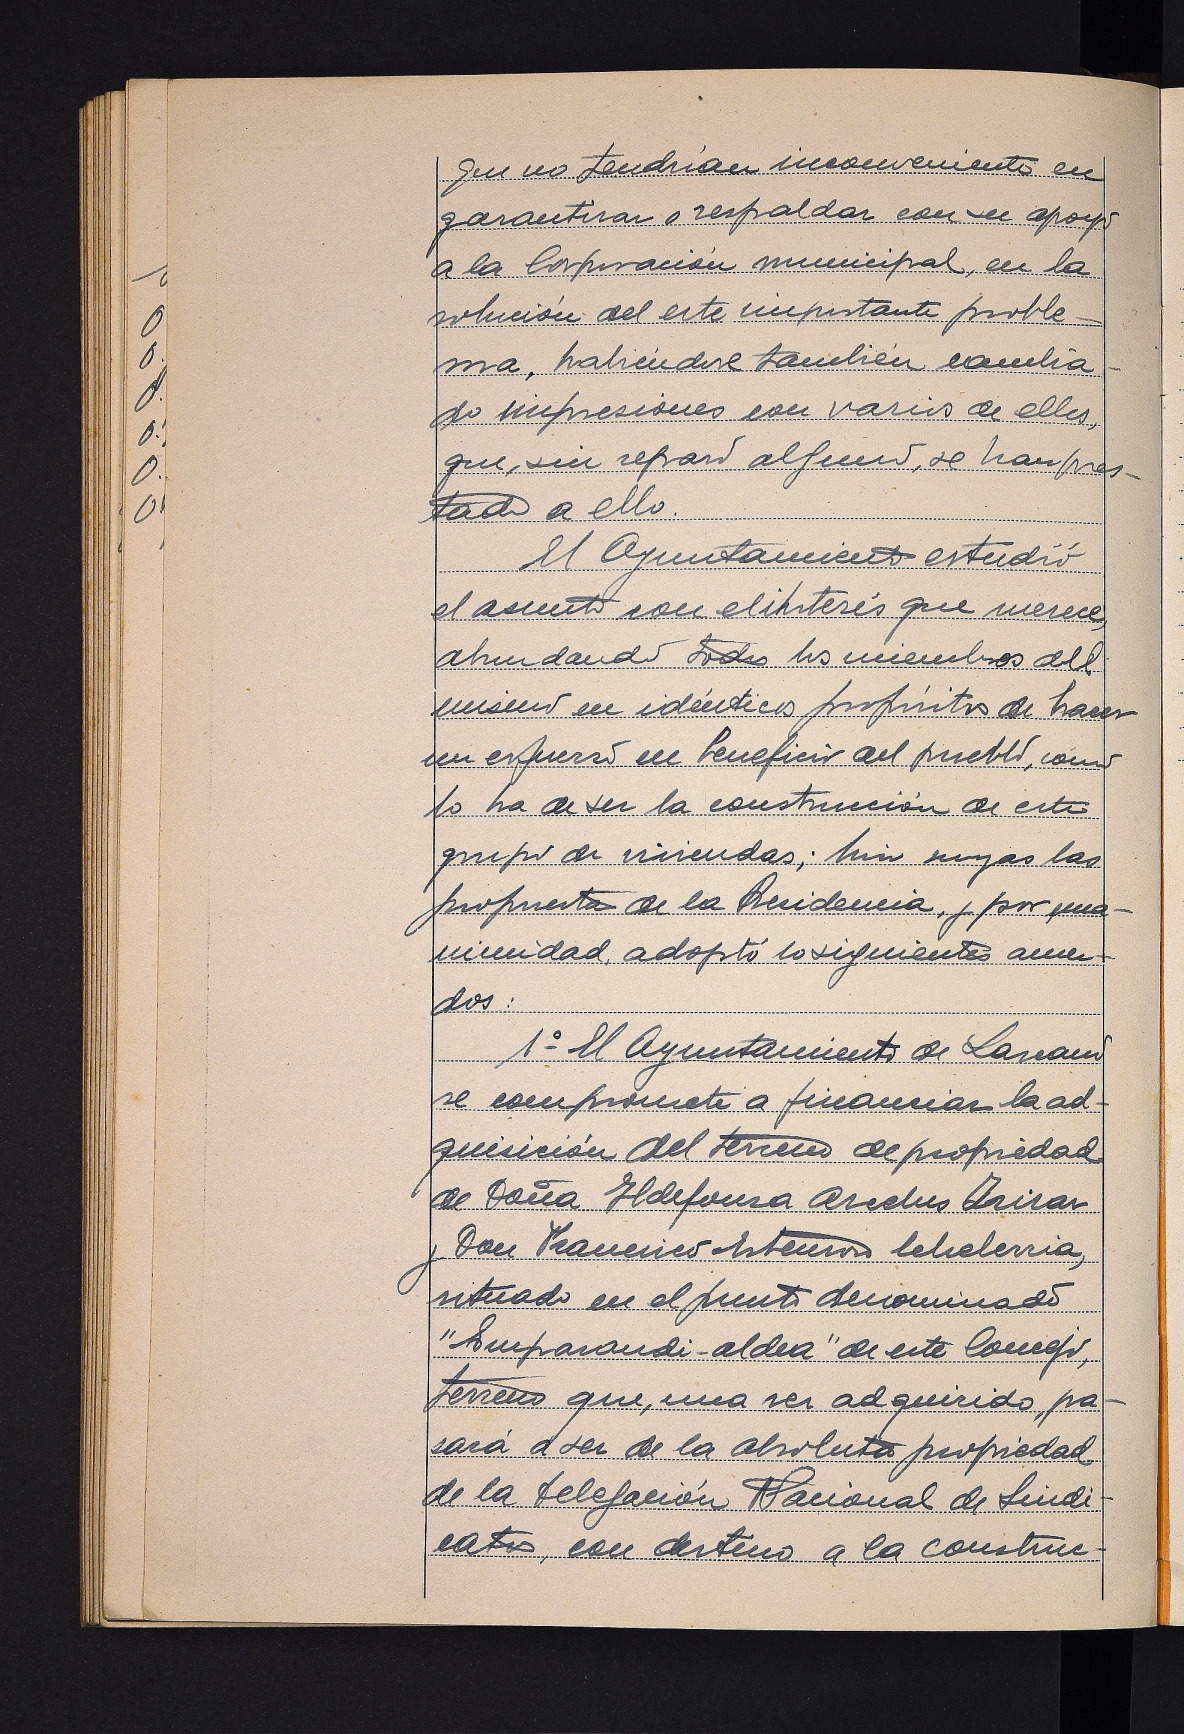 que no tendrían inconveniente en
garantizar o respaldar con su apoyo
a la Corporación municipal, en la
solución del este importante proble-
ma, habiéndose también cambia-
do impresiones con varios de ellos,
que, sin reparo alguno, se han pres-
tado a ello.
El Ayuntamiento estudió
el asunto con el interés que merece,
abundando todos los miembros del
mismo en idénticos propósitos de hacer
un esfuerzo en beneficio del pueblo, como
lo ha de ser la construcción de este
grupo de viviendas; hizo suyas las
propuesta de la Presidencia, y por una-
nimidad, adoptó lo siguientes acuer-
dos:
1º El Ayuntamiento de Lazcano
se compromete a financiar la ad-
quisición del terreno de propiedad
de Doña Ildefonsa Aseclus
y Don Francisco Echeberria,
situado en el punto denominado
"Emparandi-aldea" de este Concejo,
terreno que, una vez adquirido, pa-
sará a ser de la absoluta propiedad
de la Delegación Nacional de Sindi-
catos, con destino a la construc-